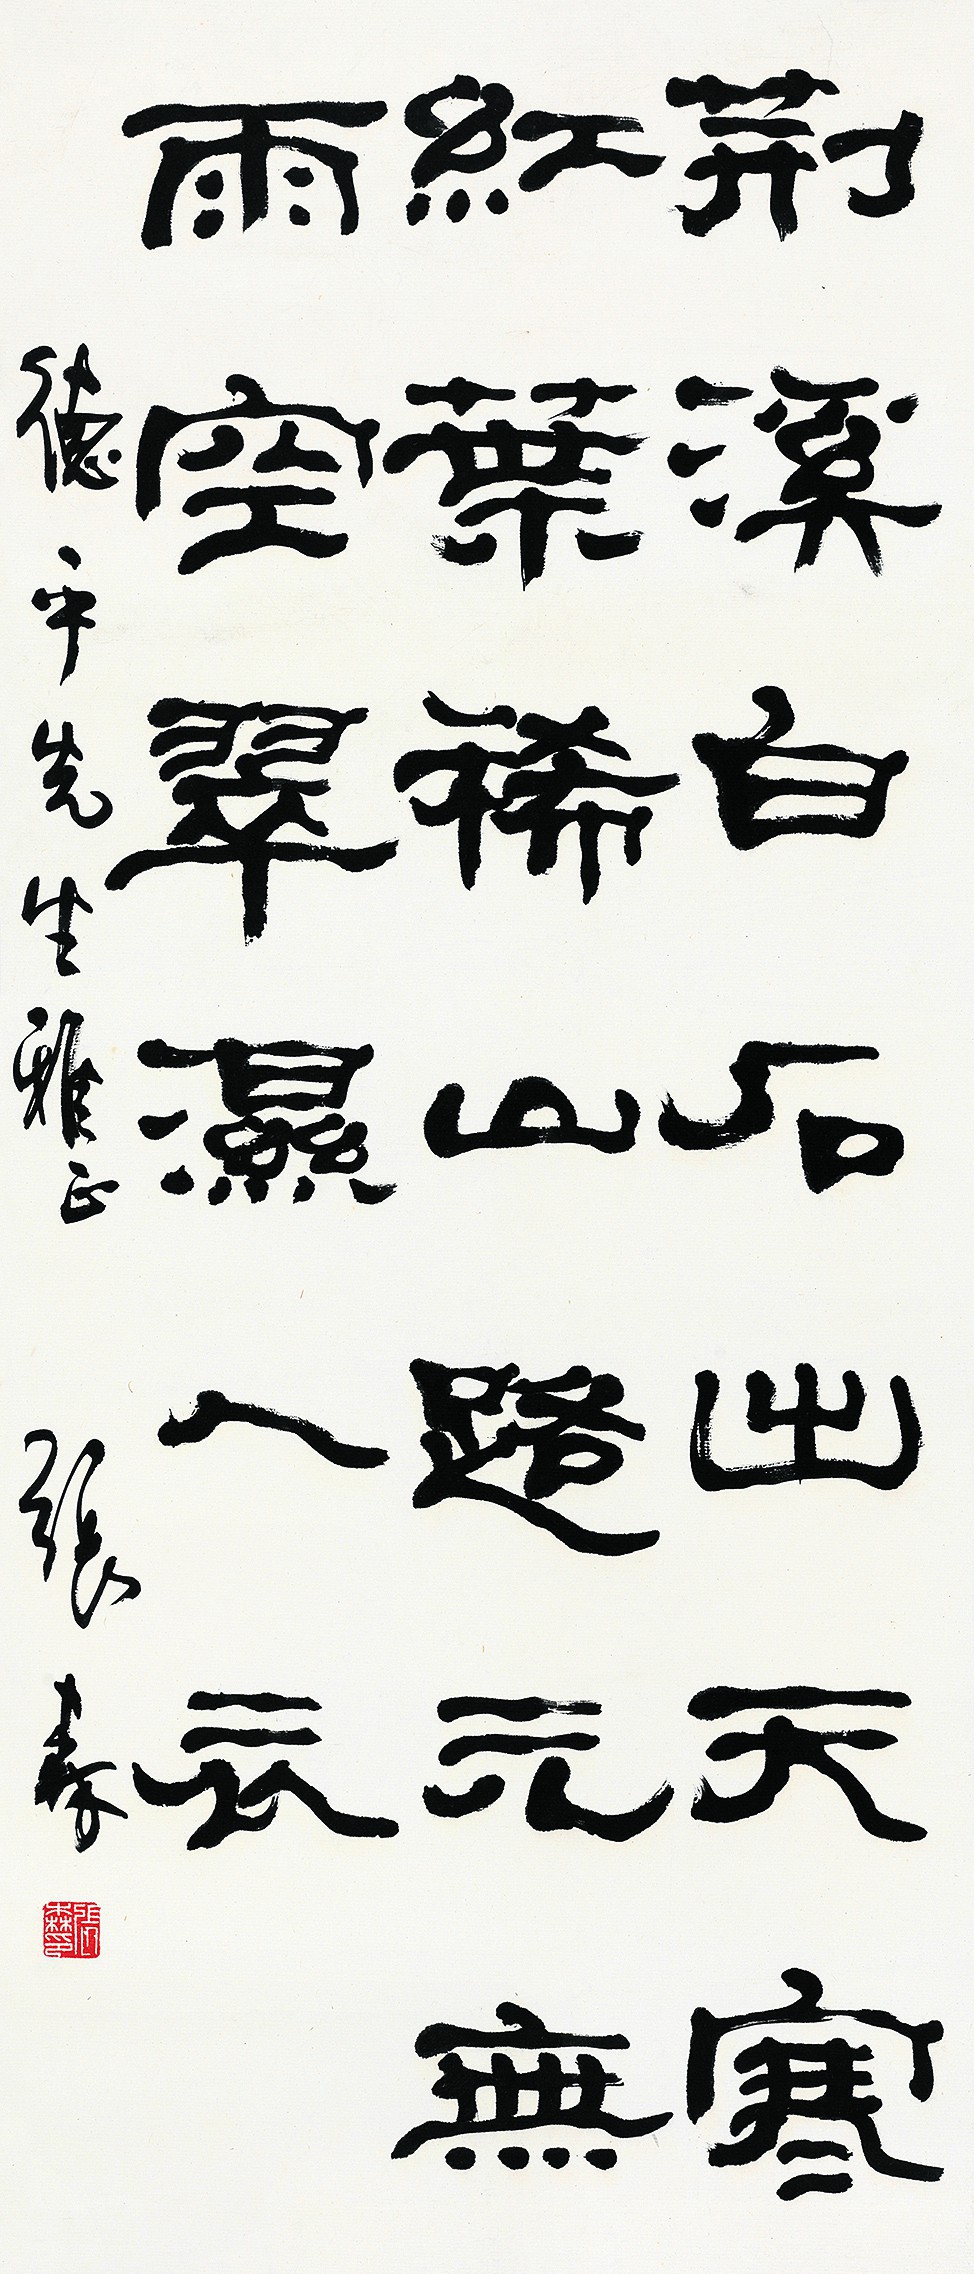 荆溪白石出天寒
紅葉稀山路元無
雨空翠濕人衣
德平先生雅正 張森